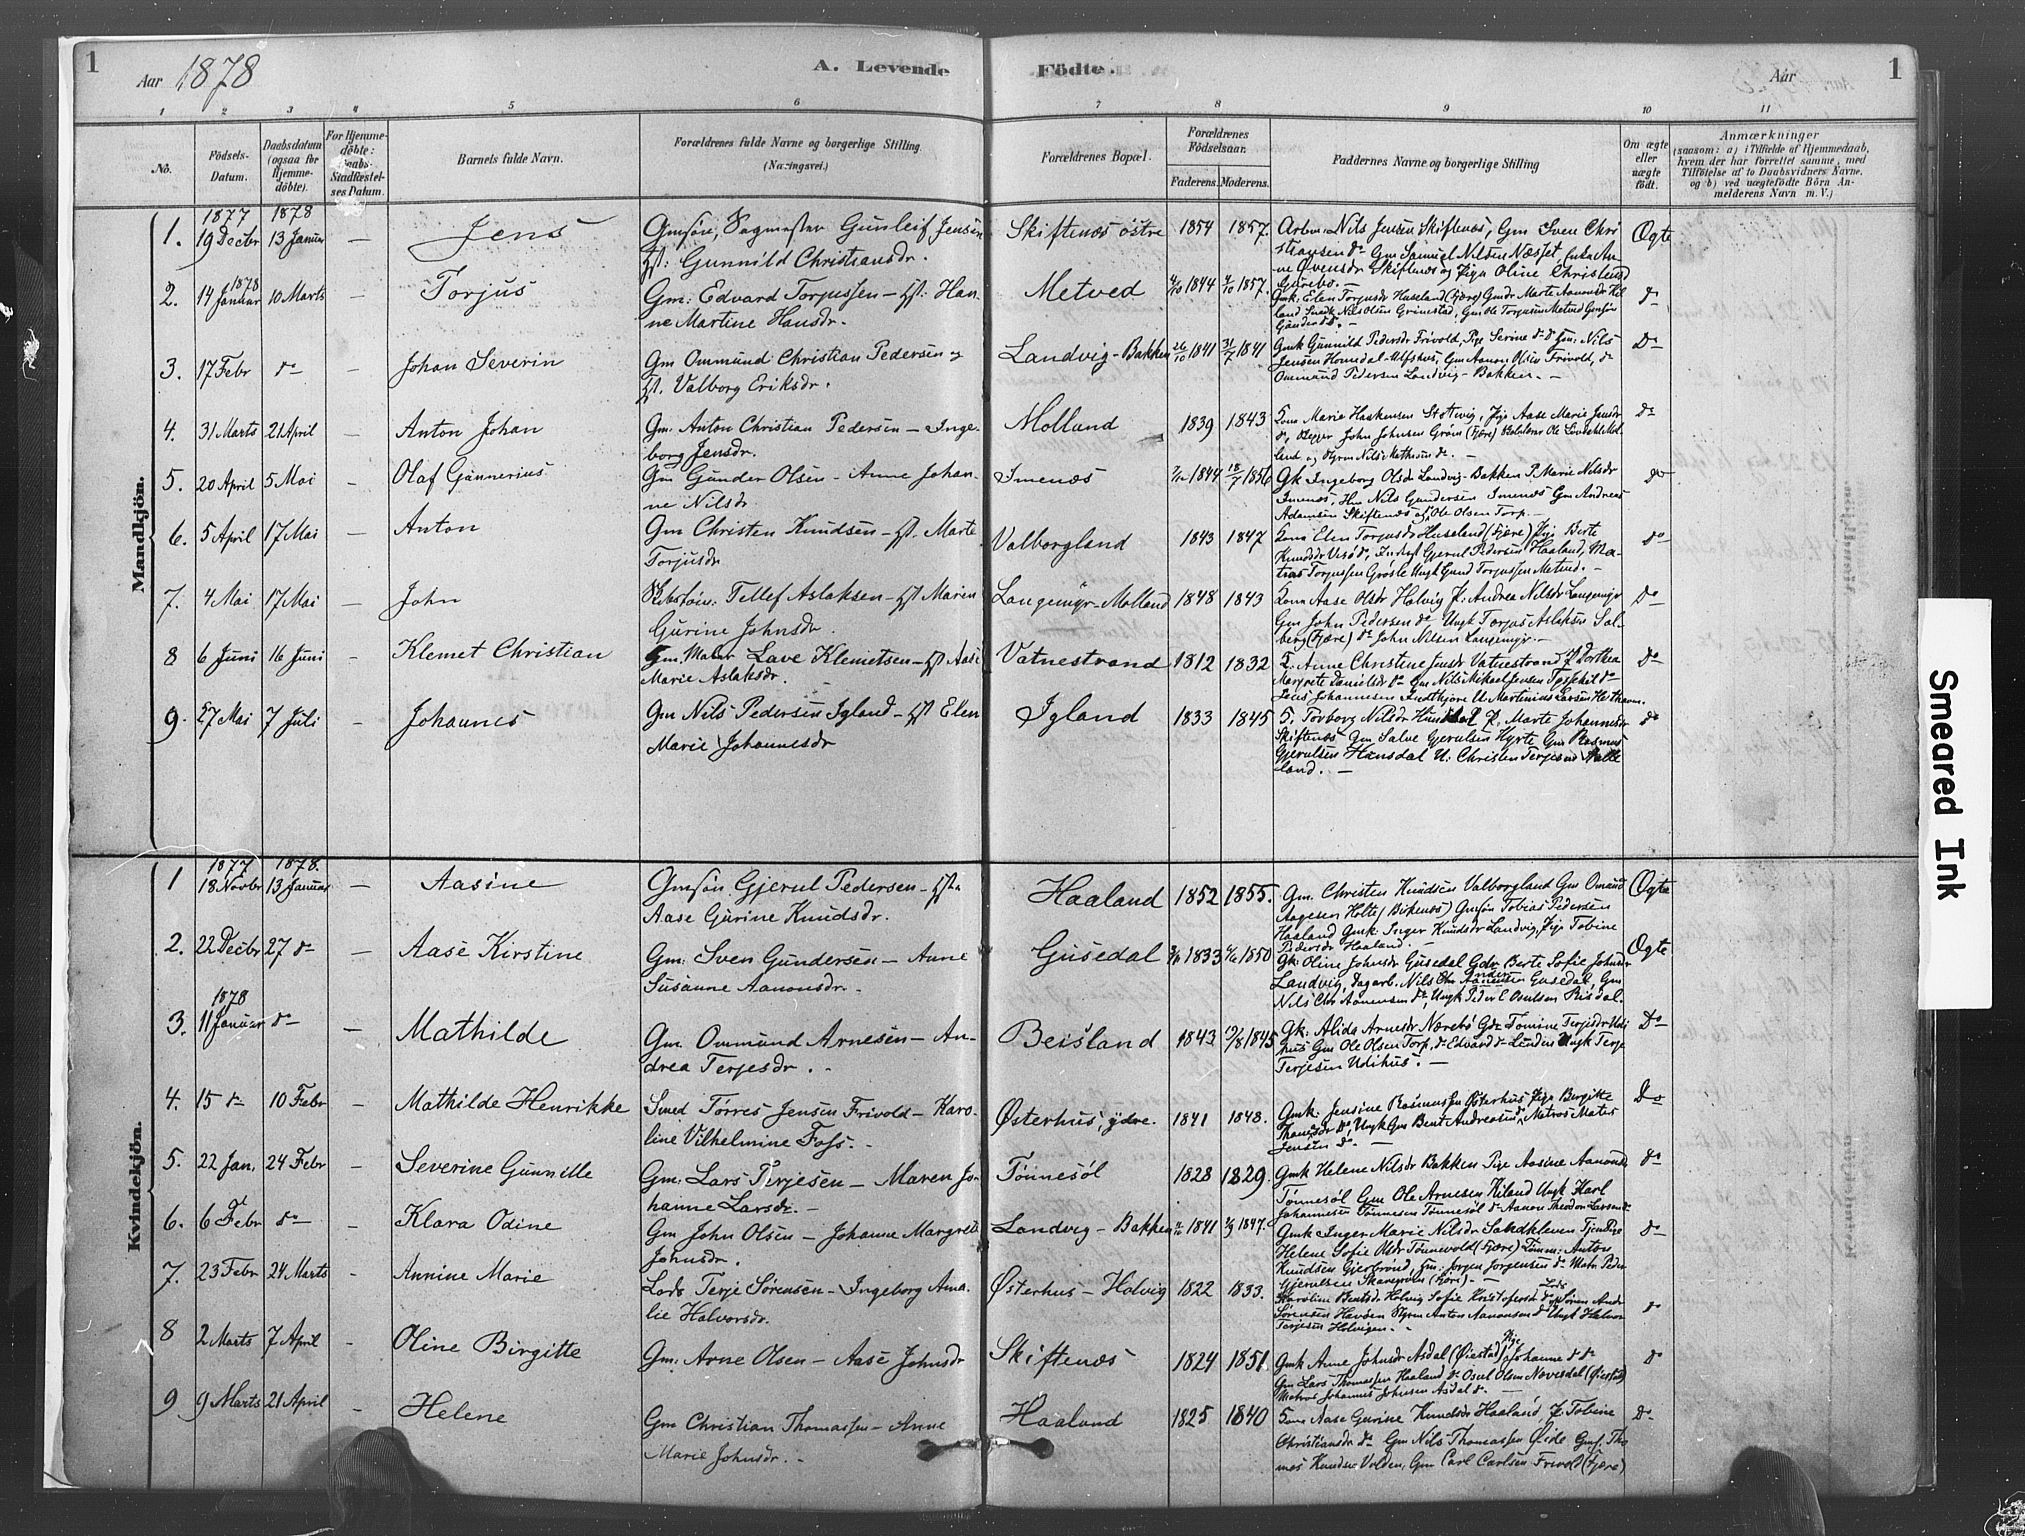 1
Aar 1878
A. Levende Födte.
Aar
1
1 2 3 4 5 6 7 8 9 10 11
No.
Födsels-Datum.
Daabsdatum (ogsaa for Hjemme-döbte).
For Hjemme-döbte: Daabs-Stadfæstel-ses Datum.
Barnets fulde Navn.
Forældrenes fulde Navne og borgerlige Stilling (Næringsvei.)
Forældrenes Bopæl.
Forældrenes Födselsaar.
Faderens. Moderens.
Faddernes Navne og borgerlige Stilling
Om ægte eller uægte födt.
Anmærkninger
(saasom: a) i Tilfælde af Hjemmedaab,
hvem der har forrettet samme, med
Tilföielse af to Daabsvidners Navne,
og b) ved uægtefödte Börn An-
melderens Navn m. V.)
Mandkjön.
1877 1878
1. 19 Decbr 13 Januar — Jens
Gmsön, Sagmester Gunleif Jensen
Hst: Gunnild Christiansdr.
Skiftenæs östre 1854 1857.
Arbm: Nils Jensen Skiftenæs, Gm Sven Chri
stiansen do Gm Samuel Nilsen Næsset, Enke An-
Ogte
1878
2. 14 Januar 10 Marts — Torjus
Gm: Edvard Torjussen — Hst: Han-
ne Martine Hansdr.
Metved 1844 1857.
Gmk: Elen Torjusdr Huseland (Fjære) Gmdr Marte Aanonsdr
land Nils Olsen Grimestad, Gm Ole Torjusen Metved
do
3. 17 Febr do — Johan Severin
Gm Ommund Christian Pedersen
Hst. Valborg Eriksdr.
Landvig-Bakken 26/10 1841 31/7 1841
Gmk Gunnild Pedersdr Frivold, Pige Serine do do Gm: Nils
Jensen Homdal Gm Aanon Olsen Frivold, do
Ommund Pedersen Landvig-Bakken. —
Do
4. 31 Marts 21 April — Anton Johan
Gm: Anton Christian Pedersen — Inge-
borg Jensdr.
Molland 1839 1843
Kone Marie Haskensen Pige Aase Marie Jensdr
John Johnsen (Fjære)
Do
5. 20 April 5 Mai — Olaf Gunnerius
Gm Gunder Olsen — Anne Johan-
ne Nilsdr.
Imenæs 1844 18/7 1856
Gk Ingeborg Olsdr Landvig-Bakken P. Marie Nilsdr
Imenæs, Nils Gundersen Imenæs Gm Andreas
Adamsen Skiftenæs og Ole Olsen Torp. —
do
6. 5 April 17 Mai — Anton
Gm Christen Knudsen — Hst. Marte
Torjusdr
Valborgland 1843 1847
Kone Elen Torjusdr Huseland (Fjære) Pige Berte
Knudsdr Gjerul Pedersen Haaland, Ma-
tias Torjussen Ungk Gund Torjussen Metved. —
do
7. 4 Mai 17 Mai — John
Tellef Aslaksen — Hst Maren
Gurine Johnsdr.
Langemyr-Molland 1848 1843
Kone Aase Olsdr Halvig P: Andrea Nilsdr Langemyr
Gm John Pedersen do Ungk Torjus Aslaksen Sal-
berg (Fjære) do John Nilsen Langemyr. —
Do
8 6 Juni 16 Juni — Klemet Christian
Gm. Maler Lave Klemetsen — Hst Aase
Marie Aslaksdr.
Vatnestrand 1812 1832
K. Anne Christine Jensdr Vatnestrand P Dorthea
Margrete Danielsdr do Gm Nils Mikaelsen
Johannesen Martinius Larsen
Do
9. 27 Mai 7 Juli — Johannes
Gm Nils Pedersen Igland — Hst Elen
Marie Johannesdr
Igland 1833 1845
Torborg Nilsdr P. Marte Johannesdr
Skiftenæs Gm Salve Gjerulsen Hyrte Gm Rasmus
Gjerulsen Hansdal U: Christen Terjesen
land. —
do
Kvindekjön.
1877 1878.
1 18 Novbr 13 Januar — Aasine
Gmsön Gjerul Pedersen — Hst
Aase Gurine Knudsdr.
Haaland 1852 1855.
Gm. Christen Knudsen Valborgland Gm Omund
Aagesen Holte (Birkenæs) Gmsön Tobias Pedersen
Haaland Gmk: Inger Knudsdr Landvig, Pige Tobine
Pedersdr Haaland. —
Ogte
2. 22 Decbr 27 do — Aase Kirstine
Gm: Sven Gundersen — Anne
Susanne Aanonsdr. —
Gusedal 1833 1850
Gk: Oline Johnsdr Gusedal Gdr Berte Sofie Johnsdr
Landvig, Dagarb. Nils Chr Gusedal, Gm
Nils Chr Aanensen do, Ungk Peder E Risdal.
Ogte
1878
3. 11 Januar do — Mathilde
Gm. Ommund Arnesen — An-
drea Terjesdr. —
Beisland 1843 19/8 1845
Gk: Alida Arnesdr Nærebö Gdr Tomine Terjesdr Udi
hus Gm Ole Olsen Torp, do Edvard do Linden Ungk Terje
Terjesen Udihus. —
Do
4. 15 do 10 Febr — Mathilde Henrikke
Smed Törres Jensen Frivold — Karo-
line Vilhelmine Foss. —
Østerhus, ydre. 1841 1848.
Gmk: Jensine Rasmussen Østerhus Pige Birgitte
do, Ungk Gm Bent Andreassen Matros Mates
Jensen do —
Do
5. 22 Jan. 24 Febr — Severine Gunnille
Gm: Lars Terjesen — Maren Jo-
hanne Larsdr. —
Tönnesöl 1828 1829.
Gmk Helene Nilsdr Bakken Pige Aasine Aanonsdr
Tönnesöl Gm Ole Arnesen Kiland Ungk Karl
Johannesen Tönnesen Tönnesöl do Aanon Theodor Larsen do
do
6. 6 Febr do — Klara Odine
Gm John Olsen — Johanne Margrete
Johnsdr.
Landvig — Bakken 1841 1847.
Gmk Inger Marie Nilsdr Sandkleven Tjen Pige
Helene Sofie Olsdr Tönnevold (Fjære) Tömm: Anton
Knudsen Gjerbrønd, Gm: Jorgen Jorgensen do Matr Peder
Gjerulsen (Fjære). —
do
7. 23 Febr 24 Marts - Annine Marie
Lods Terje Sörensen — Ingeborg Ama-
lie Halvorsdr.
Østerhus — Halvig 1822 1833.
Karoline Bentsdr Halvig Sofie
Sörensen Styrm Anton Aanonsen do Ungk Halvor
Terjesen Halvigen. -
do
8 2 Marts 7 April - Oline Birgitte
Gm: Arne Olsen — Aase Johnsdr
Skiftenæs 1824 1851.
Gmk Anne Johnsdr Asdal (Øiestad) Pige Johanne do do
Gm Lars Thomassen Haaland do Osul Olsen (Øiestad)
Matros Johannes Johnsen Asdal do —
do
9 9 Marts 21 April - Helene
Gm Christian Thomassen — Anne
Marie Johnsdr. -
Haaland 1825 1840
Kone Aase Gurine Knudsdr Haaland P. Tobine
Christiansdr do Gm Nils Thomassen Øide Gmf. Tho
mas Knudsen Volden, Gm Carl Carlsen Frivold (Fjære)
Do
Smeared Ink